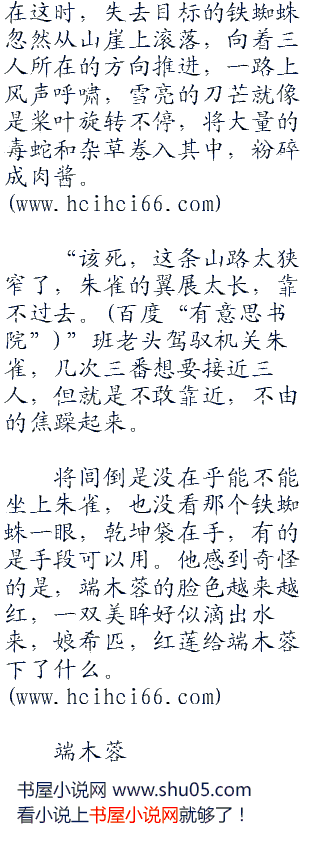 在这时，失去目标的铁蜘蛛
忽然从山崖上滚落，向着三
人所在的方向推进，一路上
风声呼啸，雪亮的刀芒就像
是桨叶旋转不停，将大量的
毒蛇和杂草卷入其中，粉碎
成肉酱。
(www.hcihci66.com)
“该死，这条山路太狭
窄了，朱雀的翼展太长，靠
不过去。(百度“有意思书
院”)”班老头驾驭机关朱
雀，几次三番想要接近三
人，但就是不敢靠近，不由
的焦躁起来。
将闾倒是没在乎能不能
坐上朱雀，也没看那个铁蜘
蛛一眼，乾坤袋在手，有的
是手段可以用。他感到奇怪
的是，端木蓉的脸色越来越
红，一双美眸好似滴出水
来，娘希匹，红莲给端木蓉
下了什么。
(www.hcihci66.com)
端木蓉
书屋小说网 www.shu05.com
看小说上书屋小说网就够了！